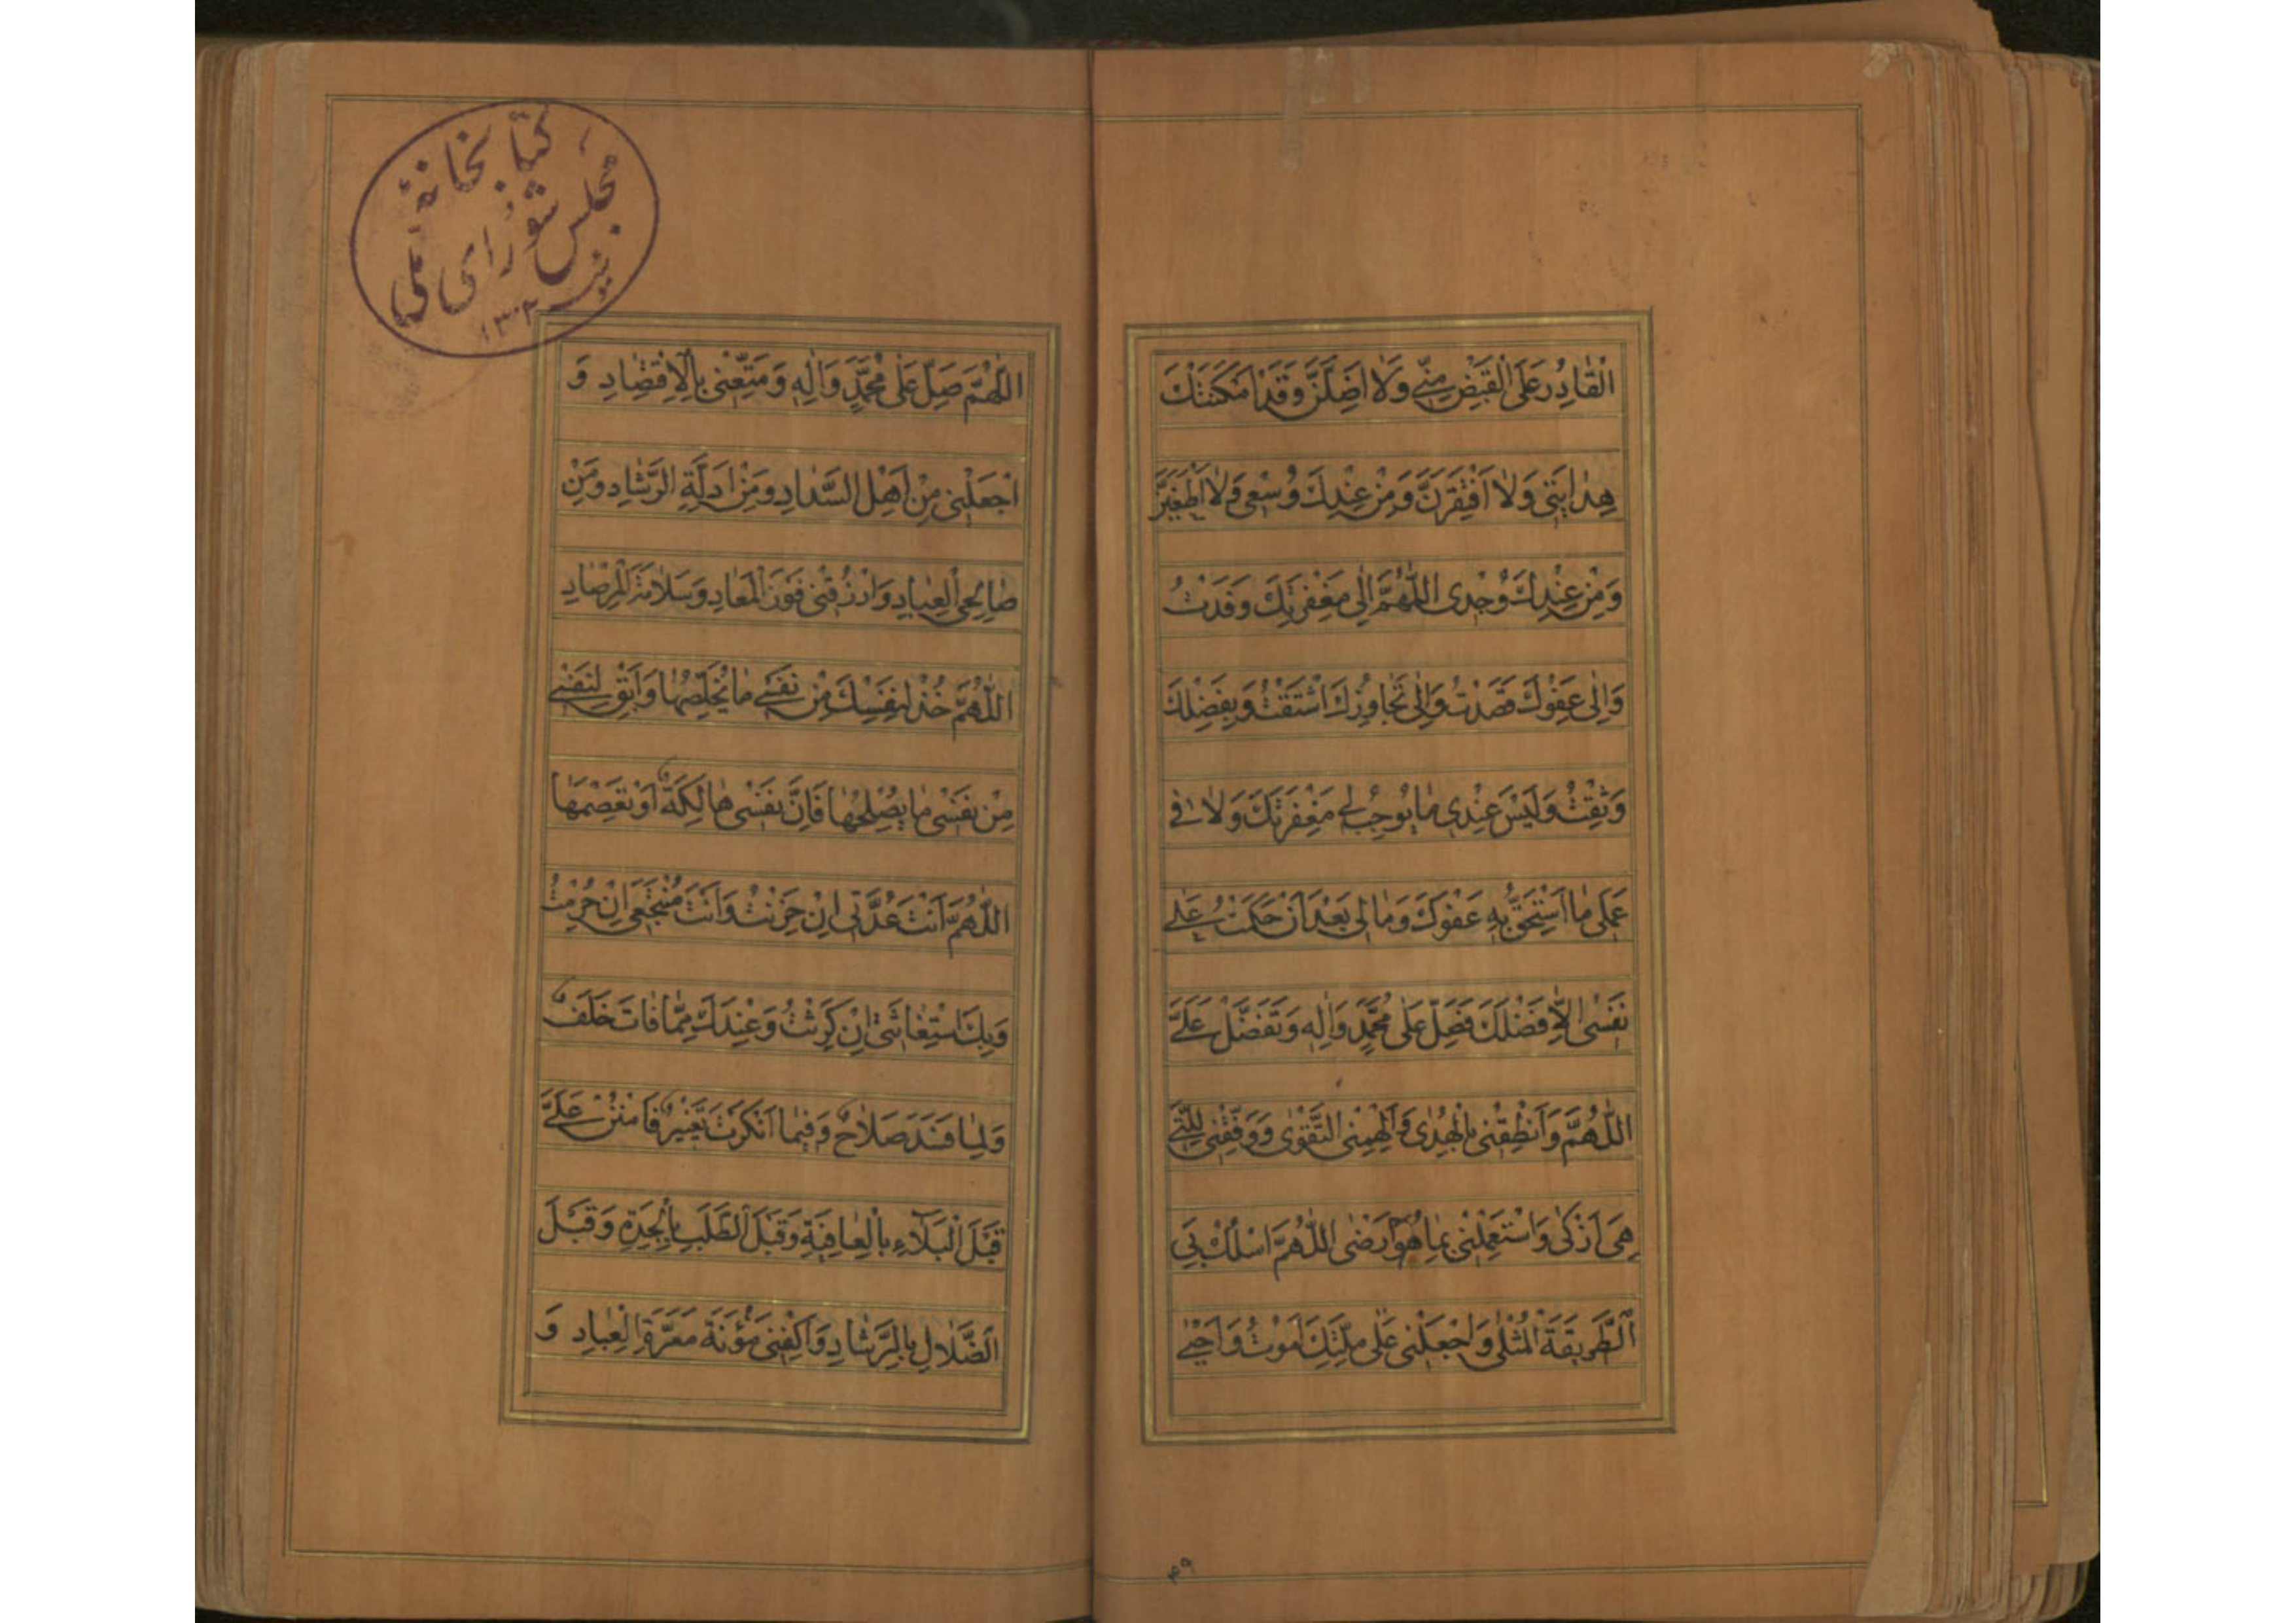 الْقٰادِرُ عَلَى الْقَبْضِ مِنّى وَلٰا اَضِلَّنَّ وَقَدْ اَمْكَنَتْكَ
هِدٰايَتى وَلٰا اَفْتَقِرَنَّ وَمِنْ عِنْدِكَ وُسْعى وَلٰا اَطْغَيَنَّ
وَمِنْ عِنْدِكَ وُجْدى اَللّٰهُمَّ اِلٰى مَغْفِرَتِكَ وَفَدْتُ
وَاِلٰى عَفْوِكَ قَصَدْتُ وَاِلٰى تَجٰاوُزِكَ اشْتَقْتُ وَبِفَضْلِكَ
وَثِقْتُ وَلَيْسَ عِنْدى مٰا يُوجِبُ لى مَغْفِرَتَكَ وَلٰا فى
عَمَلى مٰا اَسْتَحِقُّ بِهِ عَفْوَكَ وَمٰا لى بَعْدَ اَنْ حَكَمْتُ عَلٰى
نَفْسى اِلّٰا فَضْلُكَ فَصَلِّ عَلٰى مُحَمَّدٍ وَاٰلِهِ وَتَفَضَّلْ عَلَىَّ
اَللّٰهُمَّ وَاَنْطِقْنى بِالْهُدٰى وَاَلْهِمْنِى التَّقْوٰى وَوَفِّقْنى لِلَّتى
هِىَ اَزْكٰى وَاسْتَعْمِلْنى بِمٰا هُوَ اَرْضٰى اَللّٰهُمَّ اسْلُكْ بِىَ
الطَّريقَةَ الْمُثْلٰى وَاجْعَلْنى عَلٰى مِلَّتِكَ اَمُوتُ وَاَحْيٰى
٣٩
كتابخانهٔ
مجلس شورای ملی
١٣٠٢
اَللّٰهُمَّ صَلِّ عَلٰى مُحَمَّدٍ وَاٰلِهِ وَمَتِّعْنى بِالْاِقْتِصٰادِ وَ
اجْعَلْنى مِنْ اَهْلِ السَّدٰادِ وَمِنْ اَدِلَّةِ الرَّشٰادِ وَمِنْ
صٰالِحِى الْعِبٰادِ وَارْزُقْنى فَوْزَ الْمَعٰادِ وَسَلٰامَةَ الْمِرْصٰادِ
اَللّٰهُمَّ خُذْ لِنَفْسِكَ مِنْ نَفْسى مٰا يُخَلِّصُهٰا وَاَبْقِ لِنَفْسى
مِنْ نَفْسى مٰا يُصْلِحُهٰا فَاِنَّ نَفْسى هٰالِكَةٌ اَوْ تَعْصِمَهٰا
اَللّٰهُمَّ اَنْتَ عُدَّتى اِنْ حَزِنْتُ وَاَنْتَ مُنْتَجَعى اِنْ حُرِمْتُ
وَبِكَ اسْتِغٰاثَتى اِنْ كَرِثْتُ وَعِنْدَكَ مِمّٰا فٰاتَ خَلَفٌ
وَلِمٰا فَسَدَ صَلٰاحٌ وَفيمٰا اَنْكَرْتَ تَغْييرٌ فَامْنُنْ عَلَىَّ
قَبْلَ الْبَلٰاءِ بِالْعٰافِيَةِ وَقَبْلَ الطَّلَبِ بِالْجِدَةِ وَقَبْلَ
الضَّلٰالِ بِالرَّشٰادِ وَاكْفِنى مَؤُنَةَ مَعَرَّةِ الْعِبٰادِ وَ